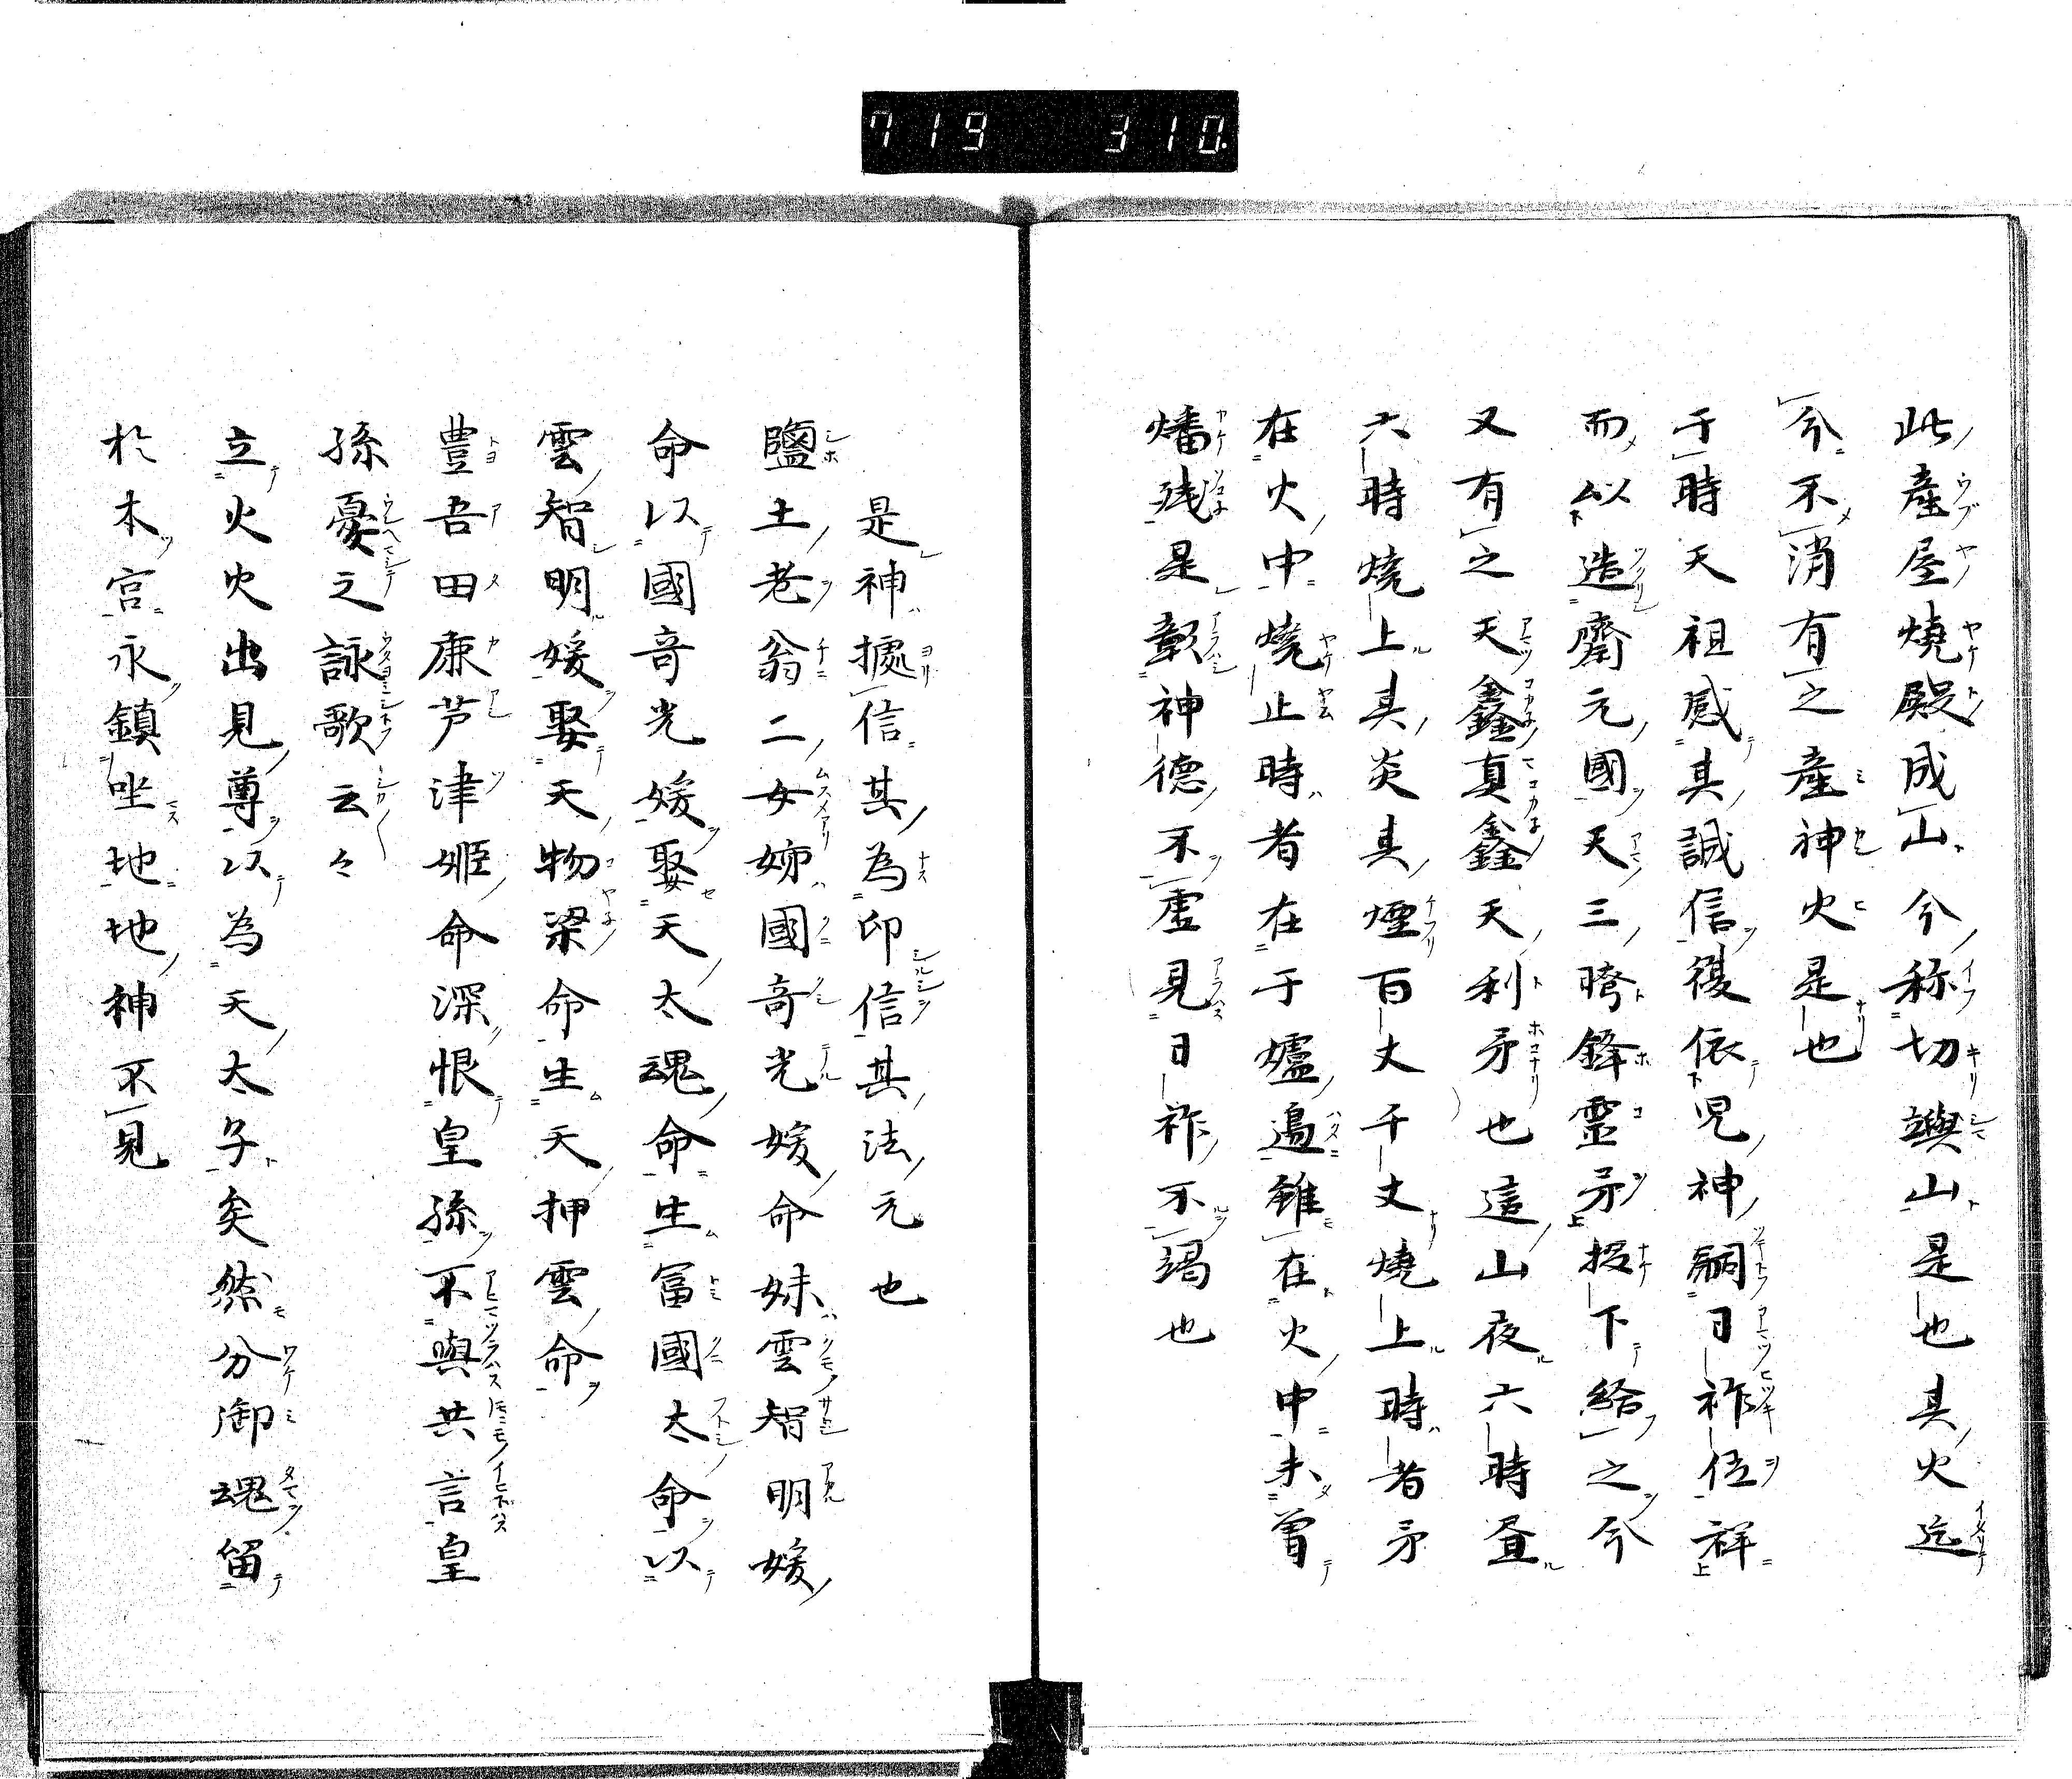 719 310
此産屋燒殿成山今称切嶼山是也其火迄
今不消有之産神火是也
于時天祖感其誠信復依児神嗣日祚位祥
而以造齋元國天三晇鋒靈矛投下給之今
又有之天鑫真鑫天利矛也這山夜六時昼
六時燒上其炎其煙百丈千丈燒上時者矛
在火中燒止時者在于爐邊雖在火中未曽
燔残是彰神德不虚見日祚不竭也
是神據信其為印信其法元也
鹽土老翁二女姉國奇光媛命妹雲智明媛
命以國竒光媛娶天太魂命生冨國太命以
雲智明媛娶天物梁命生天押雲命
豊吾田鹿芦津姫命深恨皇孫不與共言皇
孫憂之詠歌云々
立火火出見尊以為天太子矣然分御魂留
於木宮永鎮坐地地神不見